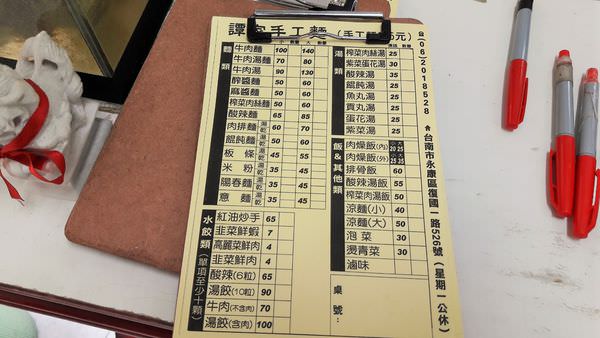 手工麵
麵類 小 數量 大 數量
牛肉麵 100 140
牛肉湯麵 70 80
牛肉湯 90 130
醡醬麵 50 60
麻醬麵 50 60
榨菜肉絲麵 50 60
酸辣麵 65 85
肉排麵 湯乾 60 70
餛飩麵 湯乾 50 60
板條 湯乾 45 55
米粉 湯乾 35 45
陽春麵 湯乾 35 45
意麵 湯乾 35 45
水餃類(單項至少十顆)
紅油炒手 65
韭菜鮮蝦 7
高麗菜鮮肉 4
韭菜鮮肉 4
酸辣(6粒) 65
湯餃(10粒) 90
牛肉(不含肉) 70
湯餃(含肉) 100
湯類
榨菜肉絲湯 25
紫菜蛋花湯 30
酸辣湯 35
餛飩湯 35
魚丸湯 25
貢丸湯 25
蛋花湯 25
紫菜湯 25
飯&其他類
肉燥飯(內) 小20 大25
肉燥飯(外) 小25 大35
排骨飯 60
酸辣湯飯 55
榨菜肉湯飯 50
涼麵(小) 40
涼麵(大) 50
泡菜 30
燙青菜 30
滷味
桌號:
☎06-2018528
台南市永康區復國一路526號(星期一公休)